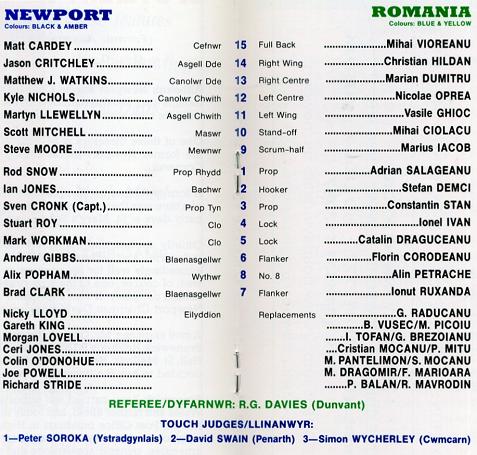 NEWPORT ROMANIA
Colours: BLACK & AMBER Colours: BLUE & YELLOW
Matt CARDEY Cefnwr 15 Full Back Mihai VIOREANU
Jason CRITCHLEY Asgell Dde 14 Right Wing Christian HILDAN
Matthew J. WATKINS Canolwr Dde 13 Right Centre Marian DUMITRU
Kyle NICHOLS Canolwr Chwith 12 Left Centre Nicolae OPREA
Martyn LLEWELLYN Asgell Chwith 11 Left Wing Vasile GHIOC
Scott MITCHELL Maswr 10 Stand-off Mihai CIOLACU
Steve MOORE Mewnwr 9 Scrum-half Marius IACOB
Rod SNOW Prop Rhydd 1 Prop Adrian SALAGEANU
Ian JONES Bachwr 2 Hooker Stefan DEMCI
Sven CRONK (Capt.) Prop Tyn 3 Prop Constantin STAN
Stuart ROY Clo 4 Lock Ionel IVAN
Mark WORKMAN Clo 5 Lock Catalin DRAGUCEANU
Andrew GIBBS Blaenasgellwr 6 Flanker Florin CORODEANU
Alix POPHAM Wythwr 8 No. 8 Alin PETRACHE
Brad CLARK Blaenasgellwr 7 Flanker Ionut RUXANDA
Nicky LLOYD Eilyddion Replacements G. RADUCANU
Gareth KING B. VUSEC/M. PICOIU
Morgan LOVELL I. TOFAN/G. BREZOIANU
Ceri JONES Cristian MOCANU/P. MITU
Colin O'DONOHUE M. PANTELIMON/S. MOCANU
Joe POWELL M. DRAGOMIR/F. MARIOARA
Richard STRIDE P. BALAN/R. MAVRODIN
REFEREE/DYFARNWR: R.G. DAVIES (Dunvant)
TOUCH JUDGES/LLINANWYR:
1—Peter SOROKA (Ystradgynlais) 2—David SWAIN (Penarth) 3—Simon WYCHERLEY (Cwmcarn)